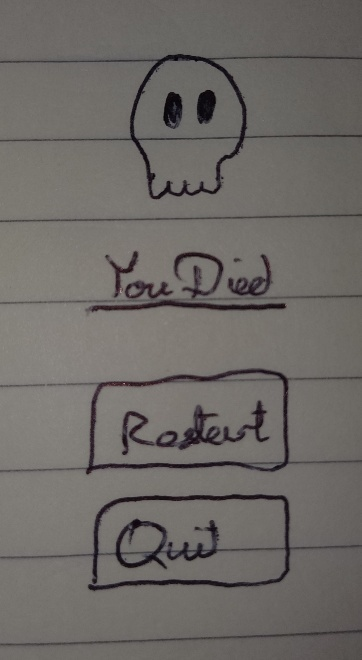 You Died
Restart
Quit